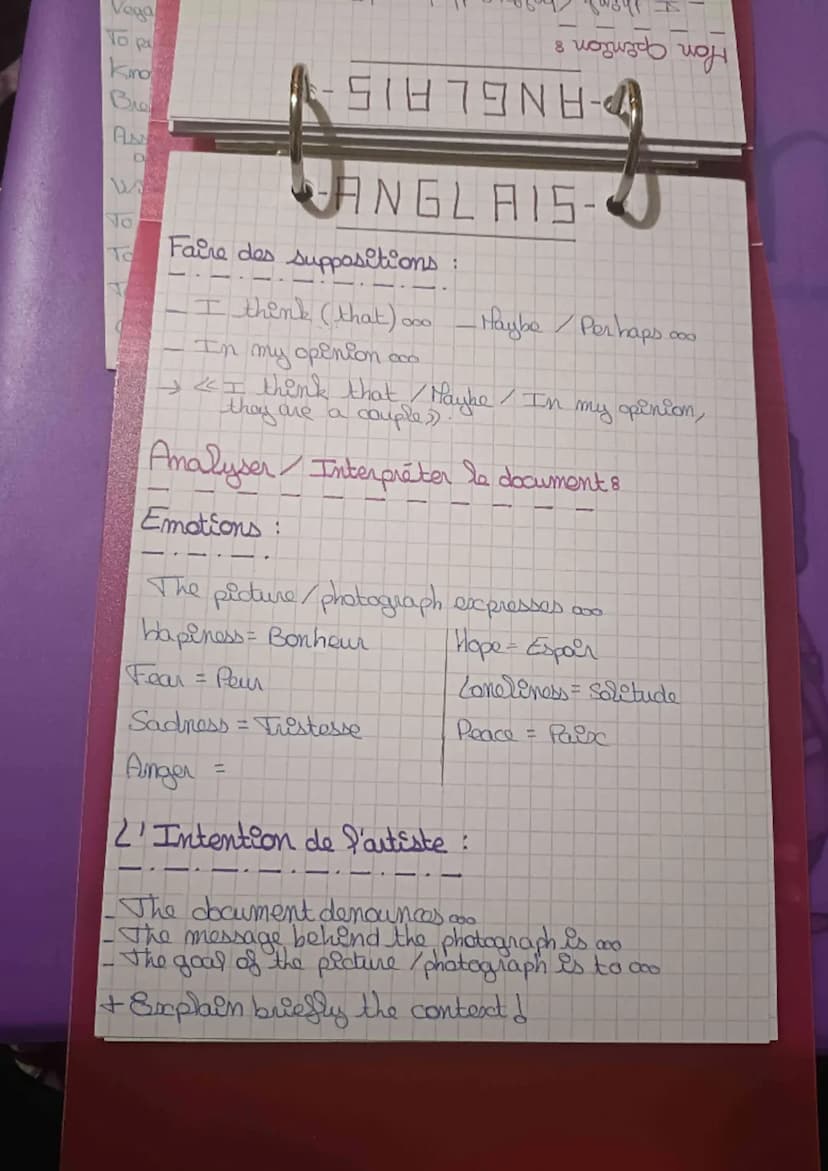 Mon Opinion :
-ANGLAIS-
-ANGLAIS-
Faire des suppositions :
- I think (that)... - Maybe / Perhaps...
- In my opinion...
→ « I think that / Maybe / In my opinion,
they are a couple ».
Analyser / Interpréter le document :
Emotions :
The picture / photograph expresses...
Hapiness = Bonheur
Fear = Peur
Sadness = Tristesse
Anger =
Hope = Espoir
Loneliness = Solitude
Peace = Paix
L'Intention de l'artiste :
- The document denounces...
- The message behind the photograph is...
- The goal of the picture / photograph is to...
+ Explain briefly the context !